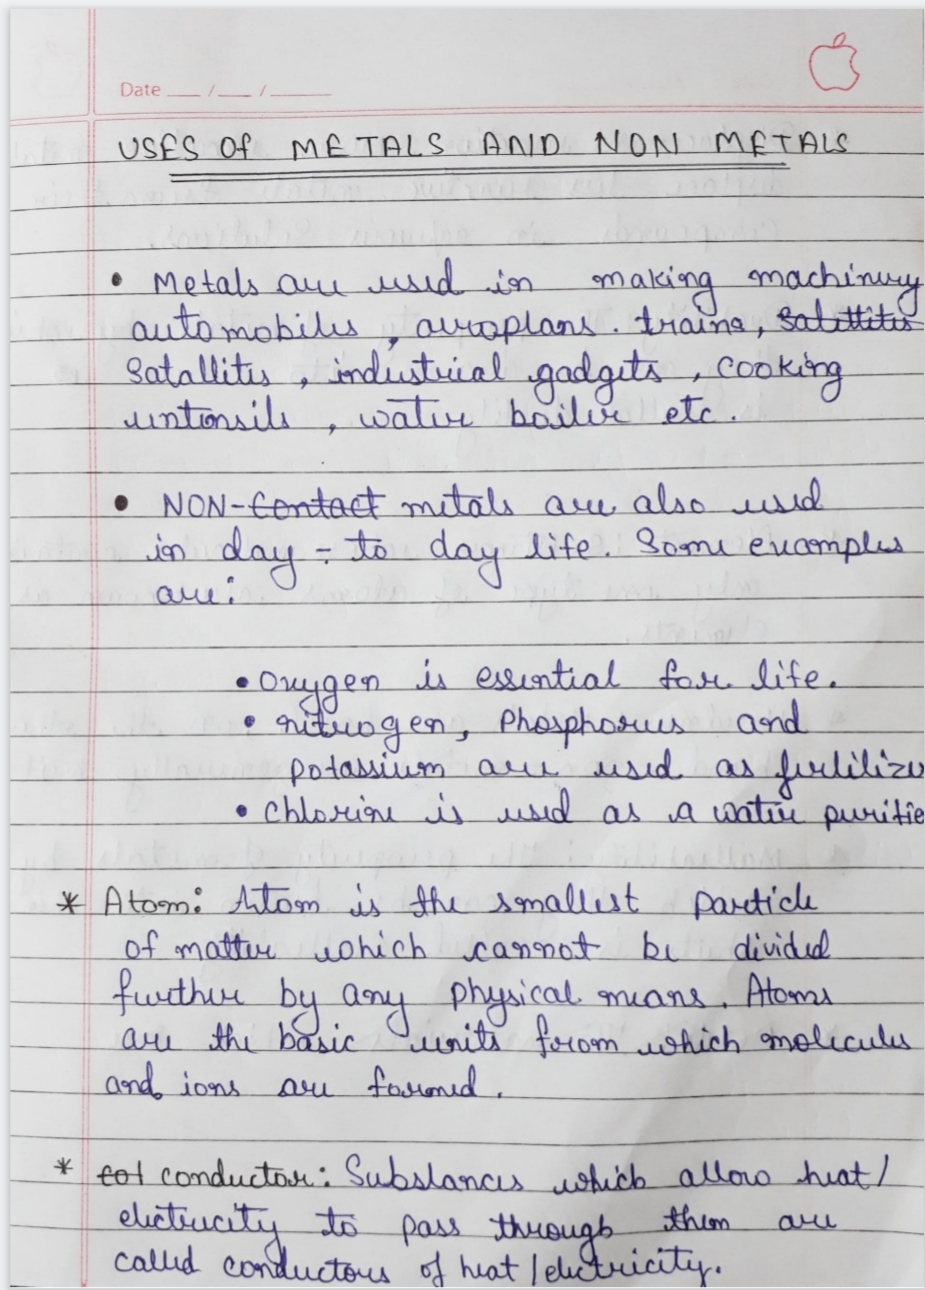 Date __ / __ / ____
USES Of METALS AND NON METALS
• Metals are used in making machinery
automobiles, auroplans trains, Satettites
Satallitis, industrial gadgets, cooking
untensils, water boiler etc.
• NON-Contact metals are also used
in day - to day life. Some examples
are:
• Oxygen is essential for life.
• nitrogen, Phosphorus and
potassium are used as fertilize
• Chlorine is used as a water purifie
* Atom: Atom is the smallest particle
of matter which cannot be divided
further by any physical means. Atoms
are the basic units from which molecules
and ions are formed.
* cot conductor: Substances which allow heat/
electricity to pass through them are
called conductors of heat/electricity.